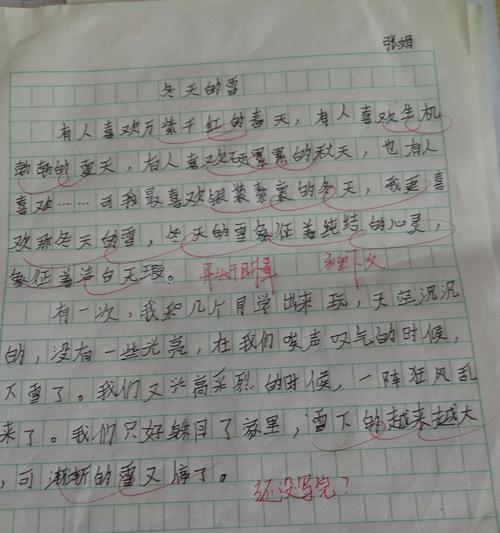 张娟
冬天的雪
有人喜欢万紫千红的春天，有人喜欢生机
勃勃的夏天，有人喜欢硕果累累的秋天，也有人
喜欢……可我最喜欢银装素裹的冬天，我更喜
欢那冬天的雪，冬天的雪象征着纯结的心灵，
象征着洁白无瑕。 开头开门见山
有一次，我和几个同学出来玩，天空沉沉
的，没有一些光亮，在我们唉声叹气的时候，
下雪了。我们又兴高采烈的时候，一阵狂风乱
来了。我们只好躲回了家里，雪下的越来越大
，可渐渐的雪又停了。 还没写完？